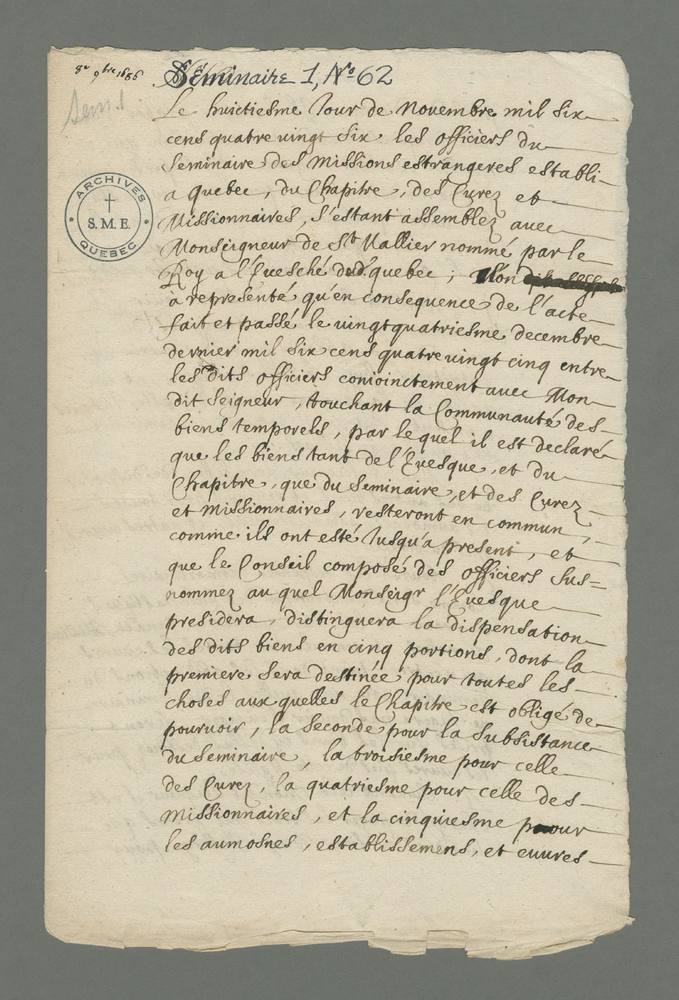 8e 9bre 1686
Séminaire 1, No 62
Sem. 1
ARCHIVES
S.M.E.
QUEBEC
Le huictiesme Jour de Novembre mil six
cens quatre vingt six les officiers du
Seminaire des Missions estrangeres establi
a Quebec, du Chapitre, des Curez et
Missionnaires, s'estant assemblez avec
Monseigneur de St Vallier nommé par le
Roy a l'Evesché de Quebec; Mon
à representé qu'en consequence de l'acte
fait et passé le vingtquatriesme decembre
dernier mil six cens quatre vingt cinq entre
les dits officiers conioinctement avec Mon
dit Seigneur, touchant la Communauté des
biens temporels, par lequel il est declaré
que les biens tant de l'Evesque, et du
Chapitre, que du Seminaire, et des Curez
et Missionnaires, resteront en commun,
comme ils ont esté Jusqu'a present, et
que le Conseil composé des officiers sus=
nommez au quel Monseigr l'Evesque
presidera, distinguera la dispensation
des dits biens en cinq portions, dont la
premiere sera destinée pour toutes les
choses aux quelles le Chapitre est obligé de
pourvoir, la seconde pour la subsistance
du Seminaire, la troisiesme pour celle
des Curez, la quatriesme pour celle des
Missionnaires, et la cinquiesme pour
les aumosnes, establissemens, et euvres